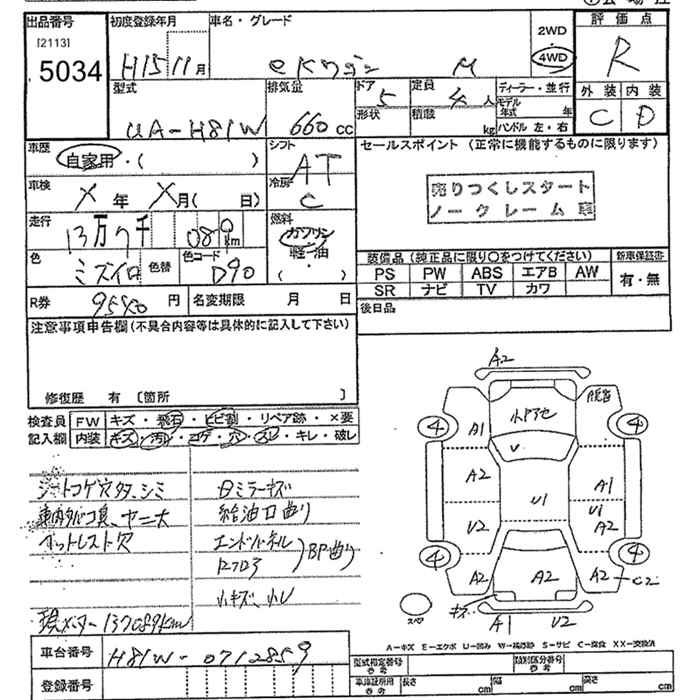 出品番号
[2113]
5034
初度登録年月
H15 11月
車名・グレード
eKワゴン M
2WD
4WD
評価点
R
外装 内装
C D
型式
UA-H81W
排気量
660 cc
ドア
5
形状
定員
4 人
積載
kg
ディーラー・並行
モデル年式 年
ハンドル 左・右
車歴
自家用・( )
シフト
AT
冷房
C
車検
X 年 X 月( 日)
走行
13万7千 080 km
燃料
ガソリン
軽油
( ・ )
色
ミズイロ
色替
色コード
D90
R券
円
名変期限 月 日
セールスポイント (正常に機能するものに限ります)
売りつくしスタート
ノークレーム車
装備品(純正品に限り○をつけてください)
PS PW ABS エアB AW
SR ナビ TV カワ
新車保証書
有・無
後日品
注意事項申告欄(不具合内容等は具体的に記入して下さい)
修復歴 有 〔箇所 〕
検査員記入欄
FW キズ・飛石・ヒビ割・リペア跡・×要
内装 キズ・汚レ・コゲ・穴・スレ・キレ・破レ
シートコゲ穴タタ、シミ
車内タバコ臭、ヤニ大
フットレスト欠
現メーター 137089km
日ミラーキズ
給油口曲り
エンドパネル
Rフロア
BP曲り
小キズ、小レ
A2
A1
④
④
V
A2
U2
U1
A1
U1
A2
④
④
A2
A2
A2
C2
キズ
A1
U2
スペア
A-キズ E-エクボ U-凹み W-補修跡 S-サビ C-腐食 XX-交換済
車台番号
H81W-0712859
登録番号
型式指定番号
参考
類別区分番号
参考
車庫証明用
参考
長さ cm
幅 cm
高さ cm